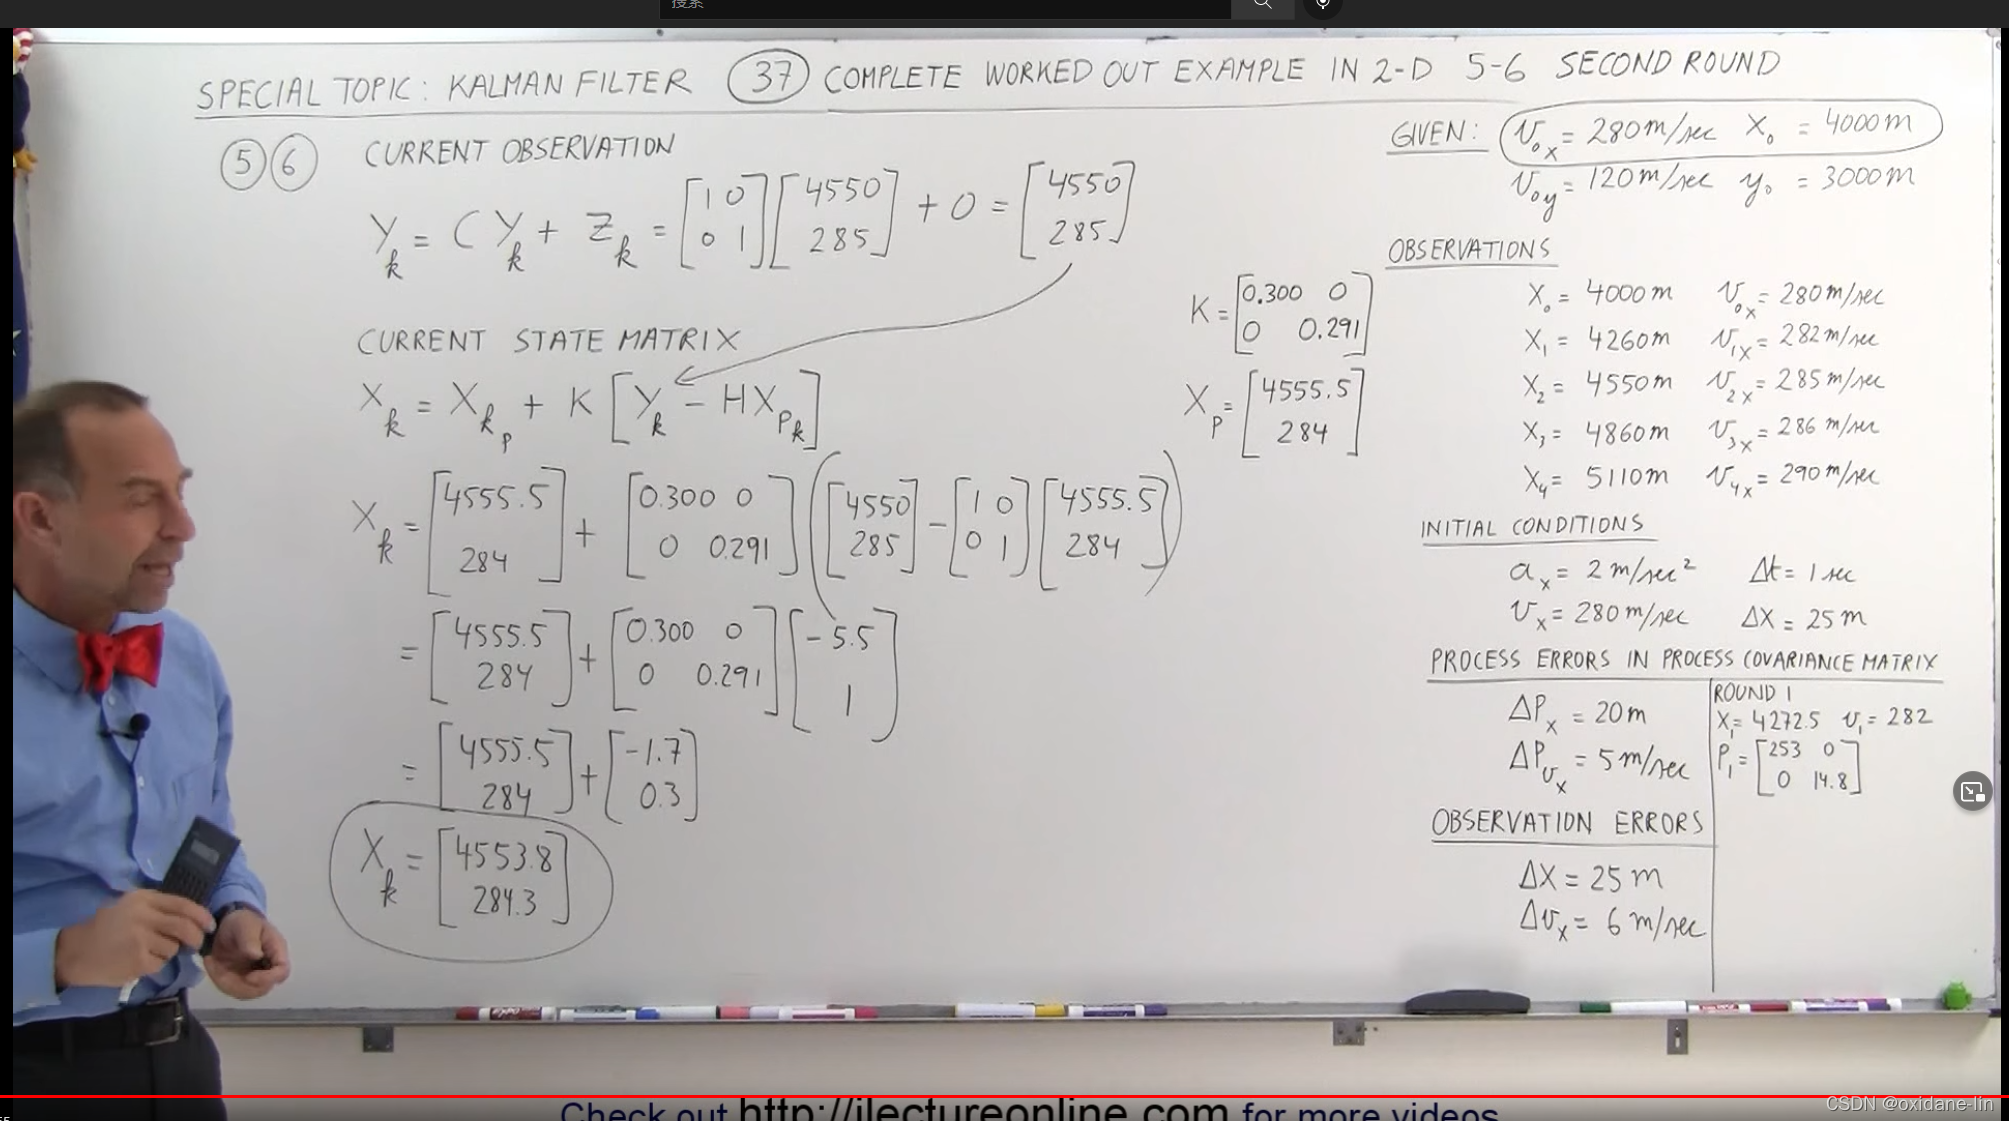 搜索
SPECIAL TOPIC: KALMAN FILTER (37) COMPLETE WORKED OUT EXAMPLE IN 2-D 5-6 SECOND ROUND
(5)(6) CURRENT OBSERVATION
Y_k = C Y_k + Z_k = [1 0; 0 1] [4550; 285] + 0 = [4550; 285]
CURRENT STATE MATRIX
X_k = X_k_p + K [Y_k - H X_p_k]
X_k = [4555.5; 284] + [0.300 0; 0 0.291] ([4550; 285] - [1 0; 0 1] [4555.5; 284])
= [4555.5; 284] + [0.300 0; 0 0.291] [-5.5; 1]
= [4555.5; 284] + [-1.7; 0.3]
X_k = [4553.8; 284.3]
K = [0.300 0; 0 0.291]
X_p = [4555.5; 284]
GIVEN: v_0x = 280 m/sec X_0 = 4000 m
v_0y = 120 m/sec y_0 = 3000 m
OBSERVATIONS
X_0 = 4000 m v_0x = 280 m/sec
X_1 = 4260 m v_1x = 282 m/sec
X_2 = 4550 m v_2x = 285 m/sec
X_3 = 4860 m v_3x = 286 m/sec
X_4 = 5110 m v_4x = 290 m/sec
INITIAL CONDITIONS
a_x = 2 m/sec² Δt = 1 sec
v_x = 280 m/sec ΔX = 25 m
PROCESS ERRORS IN PROCESS COVARIANCE MATRIX
ΔP_x = 20 m
ΔP_v_x = 5 m/sec
ROUND 1
X_1 = 4272.5 v_1 = 282
P_1 = [253 0; 0 14.8]
OBSERVATION ERRORS
ΔX = 25 m
Δv_x = 6 m/sec
Check out http://ilectureonline.com for more videos
CSDN @oxidane-lin